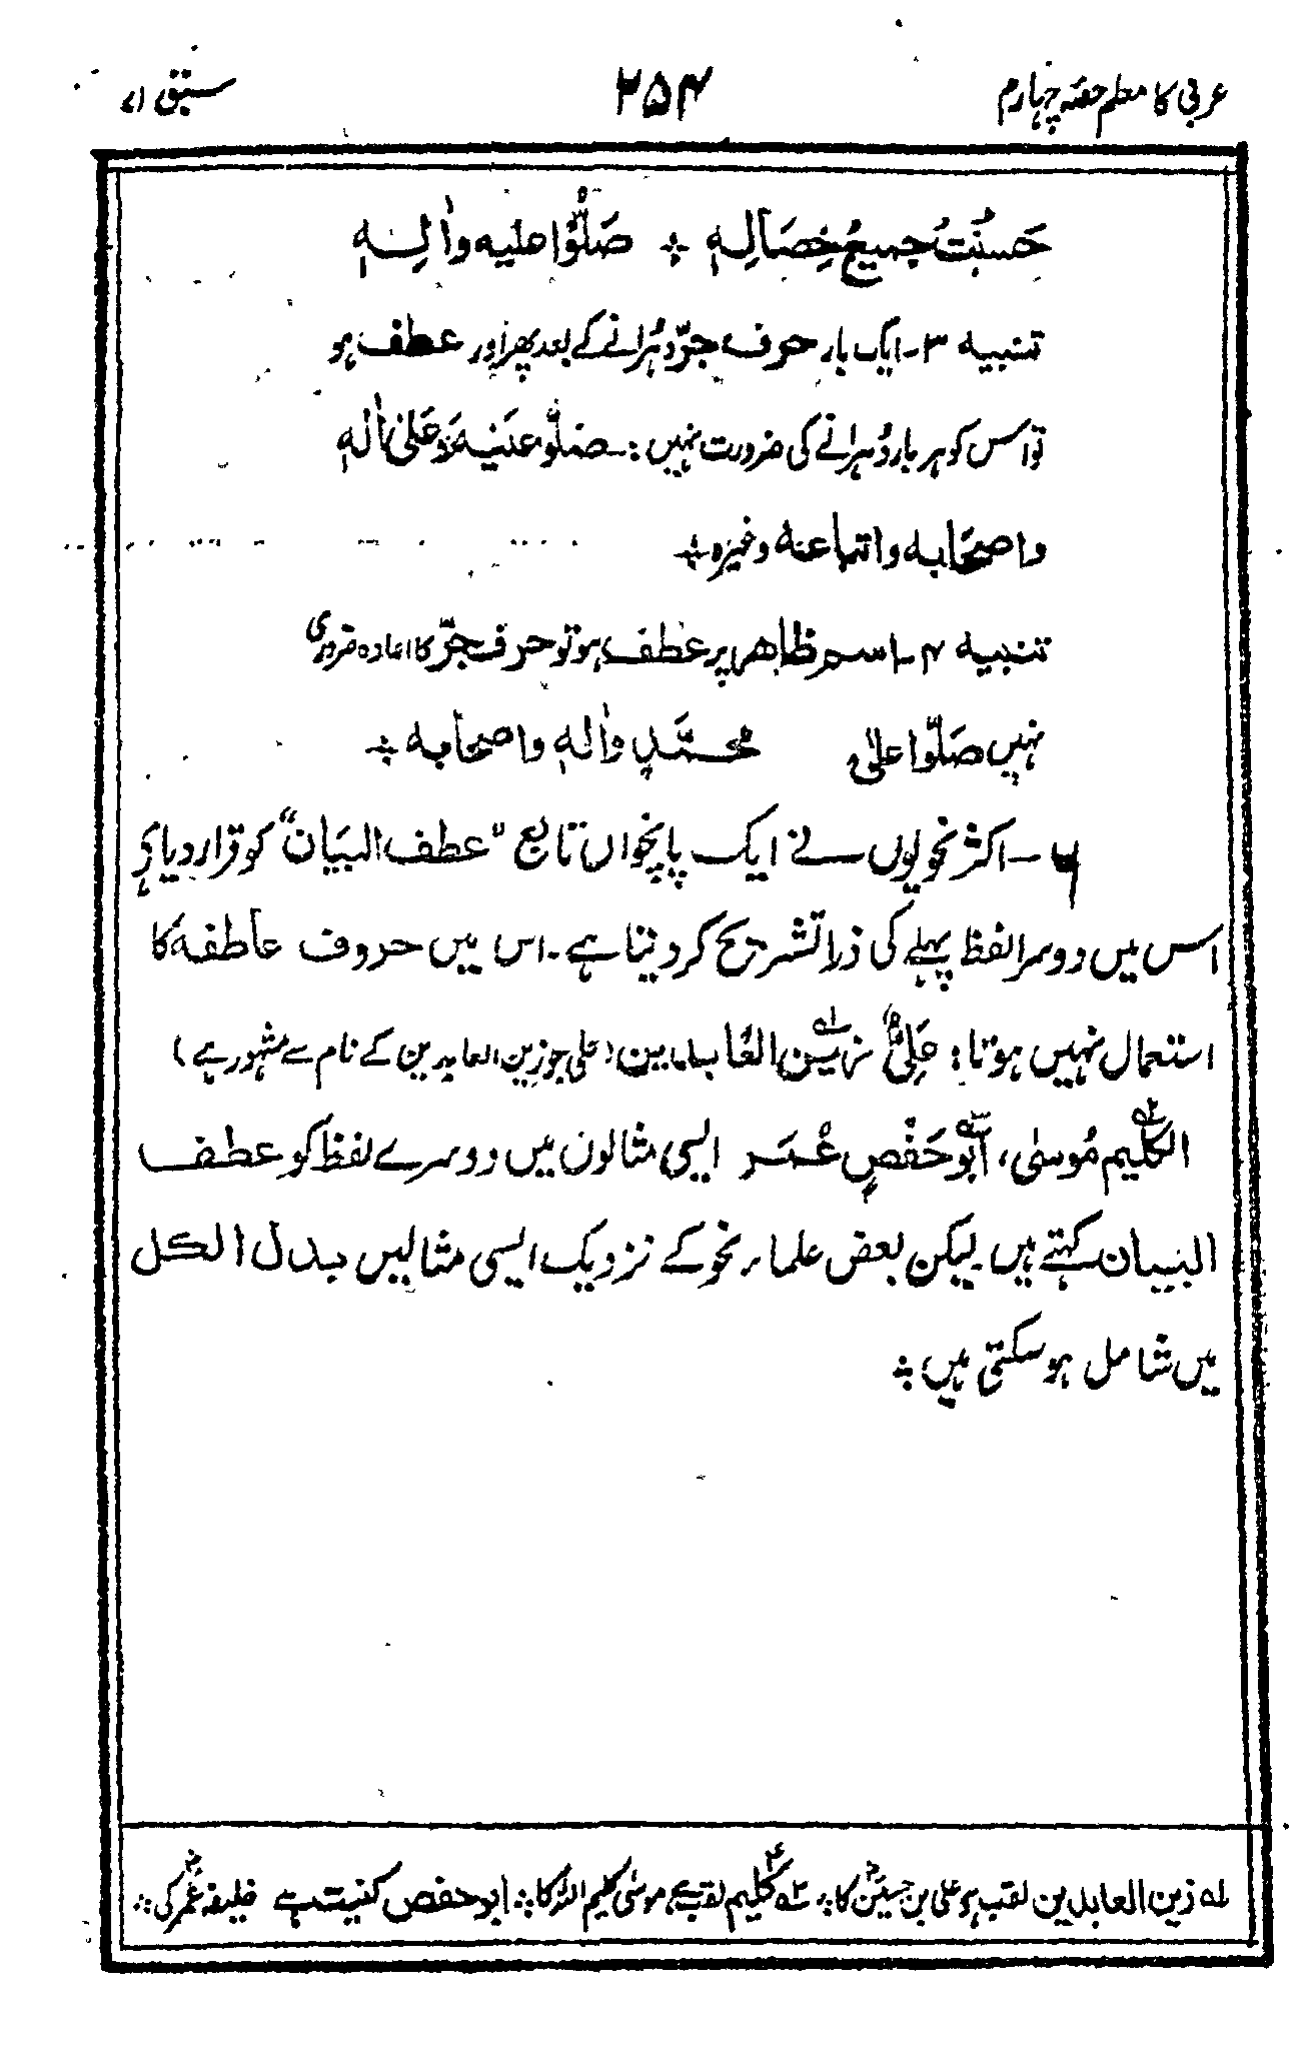 عربی کا معلم حصہ چہارم ۲۵۴ سبق ۷۱
حَسُنَتْ جمیعُ خِصَالِہٖ ؞ صَلُّوْا علیہ واٰلِہٖ
تنبیہ ۳ - ایک بار حرف جرّ دہرانے کے بعد پھر اور عطف ہو
تو اس کو ہر بار دُہرانے کی ضرورت نہیں :- صَلُّوا علیہِ وَعَلٰی اٰلہٖ
واصحَابہ واتباعہ وغیرہ ؞
تنبیہ ۴ - اسم ظاہر پر عطف ہو تو حرف جرّ کا اعادہ ضروری
نہیں صَلُّوا علیٰ محمّدٍ واٰلہٖ واصحابہ ؞
۶ - اکثر نحویوں نے ایک پانچواں تابع "عطف البیَان" کو قرار دیا ہے
اس میں دوسرا لفظ پہلے کی ذرا تشریح کر دیتا ہے - اس میں حروف عاطفہ کا
استعمال نہیں ہوتا : عَلِیٌّ زینُ العابدین (علی جو زین العابدین کے نام سے مشہور ہے)
الکلیم مُوسٰی، أَبُو حَفْصٍ عُمَر ایسی مثالوں میں دوسرے لفظ کو عطف
البیان کہتے ہیں - لیکن بعض علماء نحو کے نزدیک ایسی مثالیں بدل الکل
میں شامل ہو سکتی ہیں ؞
لہ زین العابدین لقب ہے علی بن حسینؓ کا ؞ ۲ے کلیم لقب ہے موسٰی کلیم اللہ کا ؞ ابو حفص کنیت ہے خلیفہ عمرؓ کی ؞